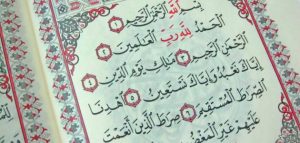 بِسْمِ ٱللَّهِ ٱلرَّحْمَٰنِ ٱلرَّحِيمِ ١
ٱلْحَمْدُ لِلَّهِ رَبِّ ٱلْعَٰلَمِينَ ٢
ٱلرَّحْمَٰنِ ٱلرَّحِيمِ ٣ مَٰلِكِ يَوْمِ ٱلدِّينِ ٤
إِيَّاكَ نَعْبُدُ وَإِيَّاكَ نَسْتَعِينُ ٥ ٱهْدِنَا
ٱلصِّرَٰطَ ٱلْمُسْتَقِيمَ ٦ صِرَٰطَ ٱلَّذِينَ أَنْعَمْتَ
عَلَيْهِمْ غَيْرِ ٱلْمَغْضُوبِ